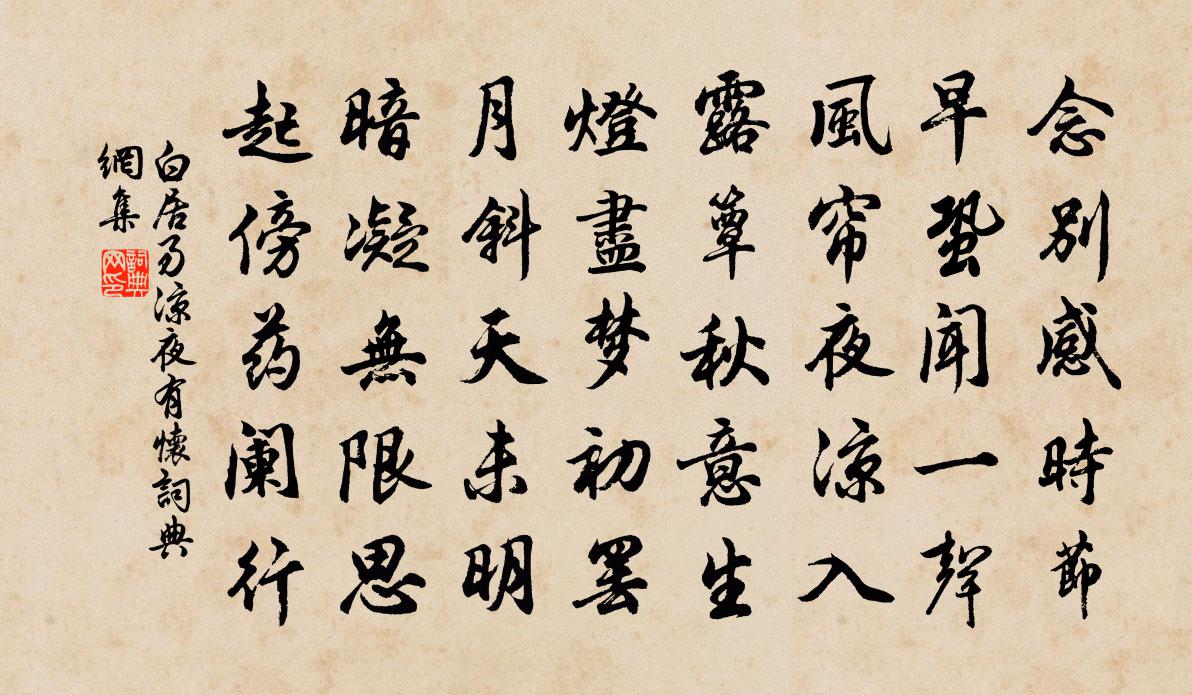 念别感時節
早蛩闻一聲
風帘夜涼入
露簟秋意生
燈盡梦初罢
月斜天未明
暗凝無限思
起傍药阑行
白居易涼夜有懷詞典
網集
詞典
网印